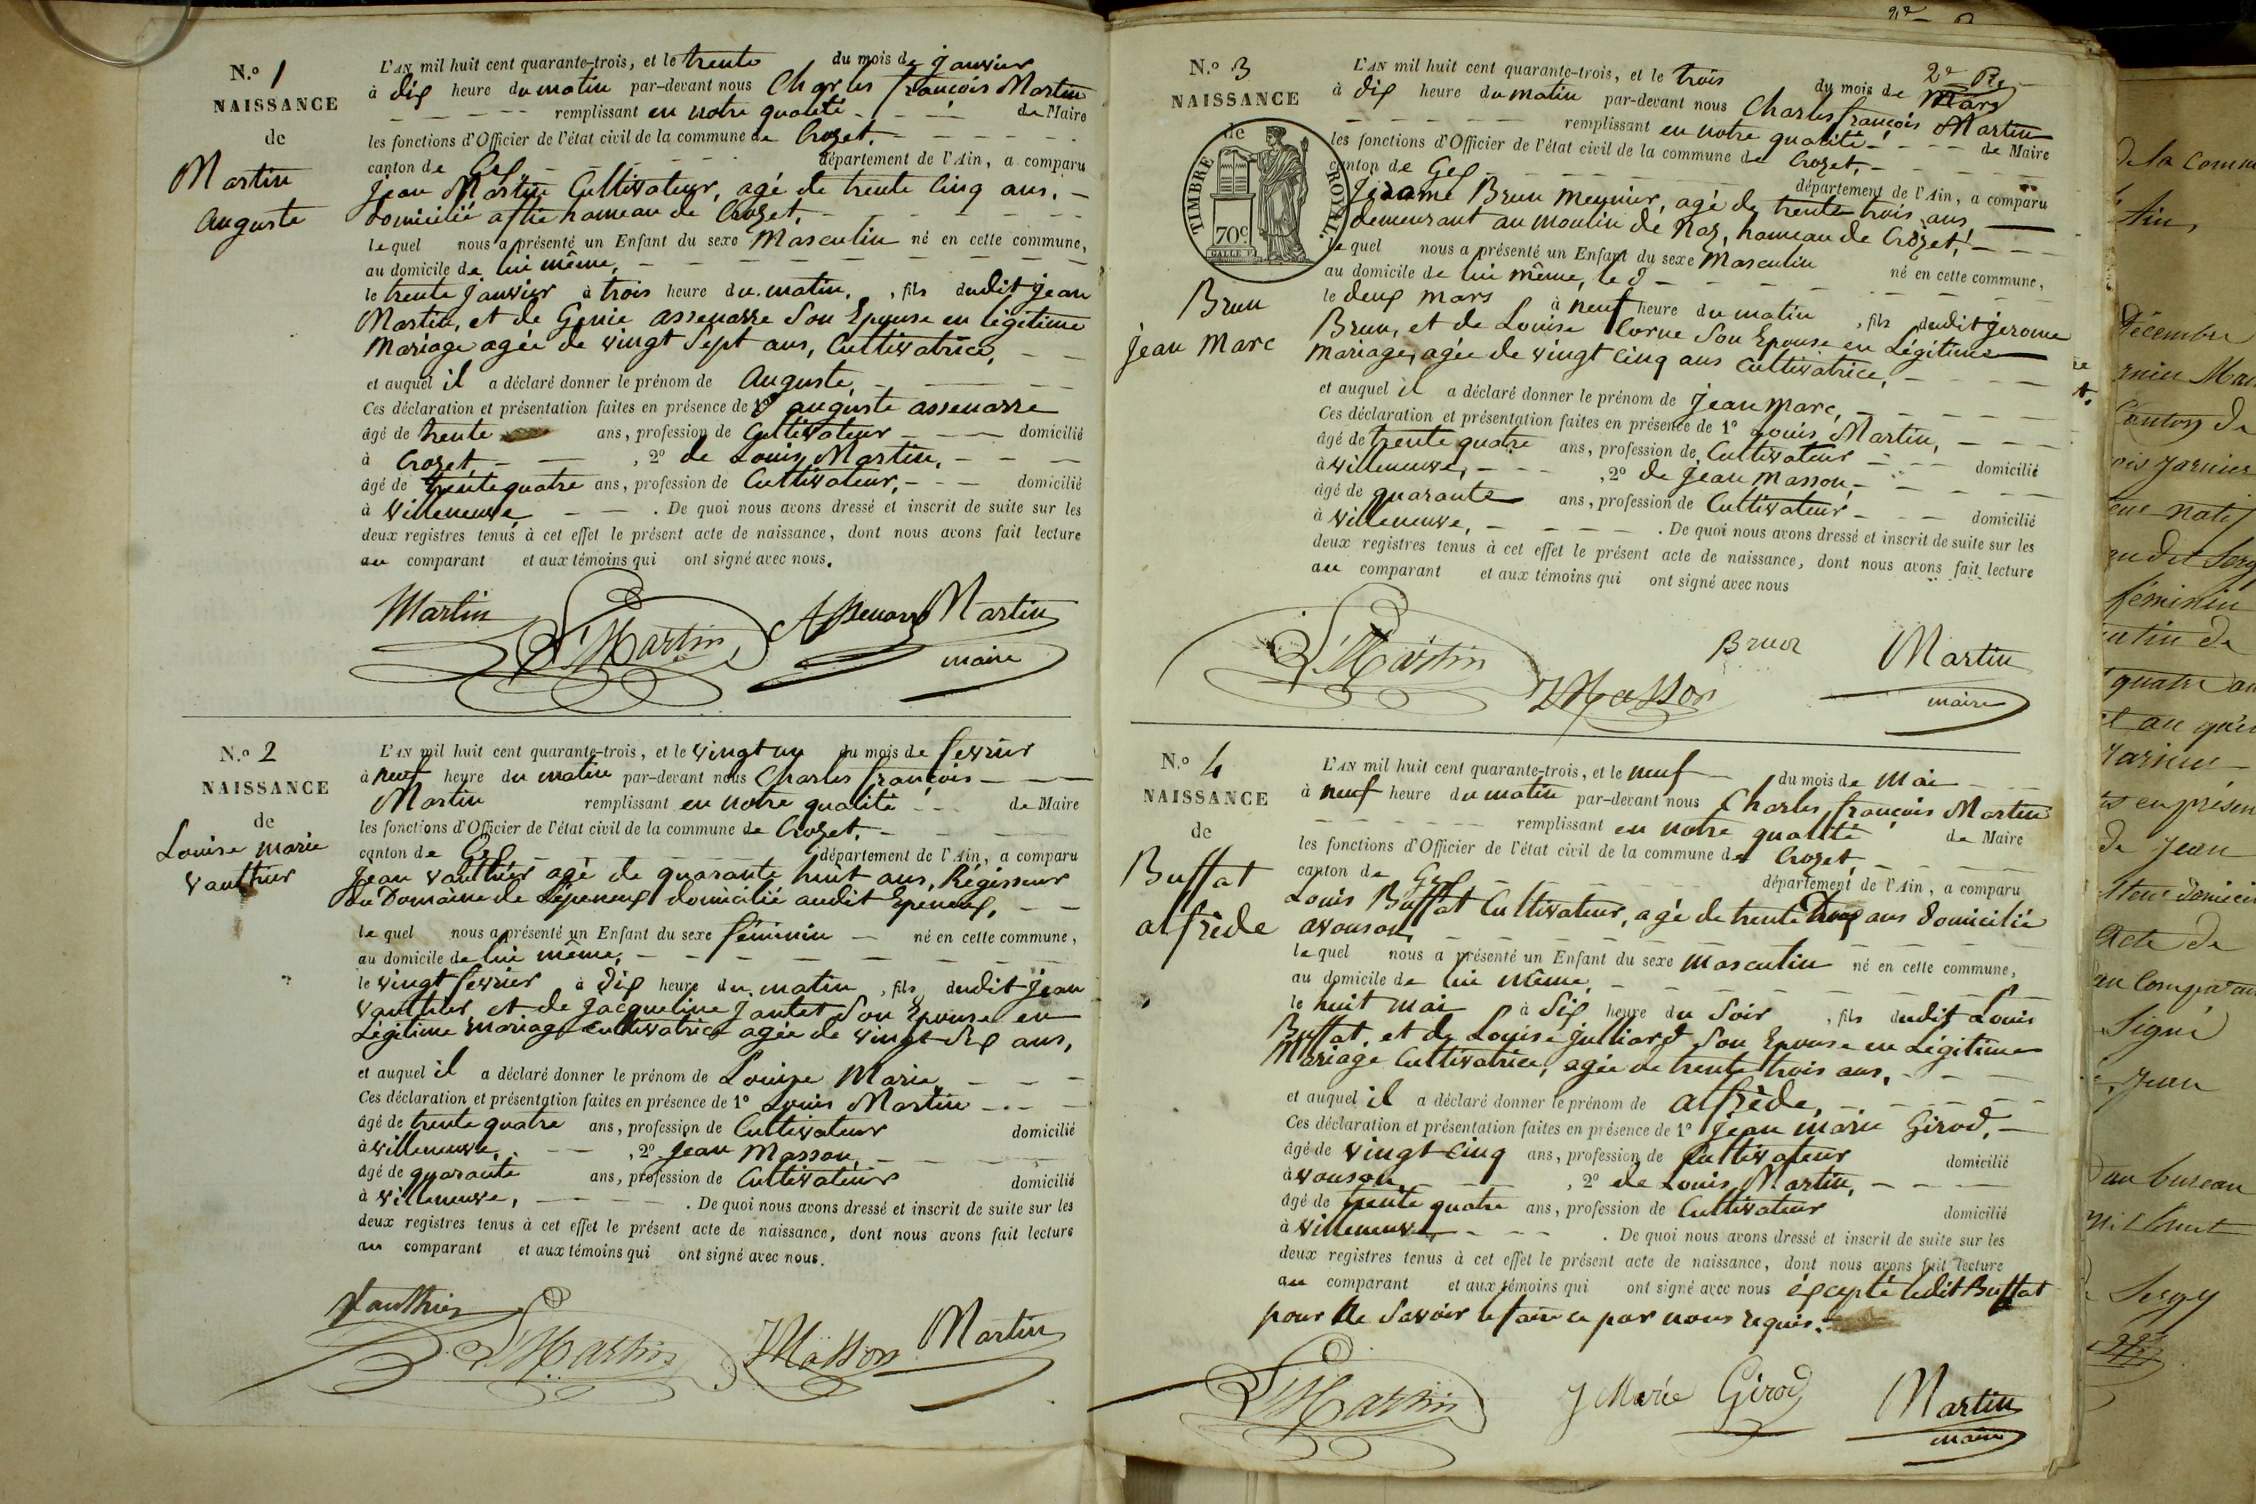 N.o 1
NAISSANCE
de
Martin
Auguste
L'AN mil huit cent quarante-trois, et le trente du mois de janvier
à dix heure du matin par-devant nous Charles françois Martin
remplissant en notre qualité de Maire
les fonctions d'Officier de l'état civil de la commune de Crozet,
canton de Gex département de l'Ain, a comparu
Jean Martin Cultivateur, agé de trente Cinq ans,
domicilié hameau de Crozet,
lequel nous a présenté un Enfant du sexe Masculin né en cette commune,
au domicile de lui même,
le trente janvier à trois heure du matin, fils dudit jean
Martin, et de Génie assenarre Son Epouse en légitime
Mariage agée de vingt Sept ans, Cultivatrice,
et auquel il a déclaré donner le prénom de Auguste,
Ces déclaration et présentation faites en présence de 1o auguste assenarre
âgé de trente ans, profession de Cultivateur domicilié
à Crozet, 2o de Louis Martin,
âgé de trente quatre ans, profession de Cultivateur, domicilié
à Villeneuve, . De quoi nous avons dressé et inscrit de suite sur les
deux registres tenus à cet effet le présent acte de naissance, dont nous avons fait lecture
au comparant et aux témoins qui ont signé avec nous.
Martin L Martin Martin
maire
N.o 2
NAISSANCE
de
Louise Marie
Vauthier
L'AN mil huit cent quarante-trois, et le vingt un du mois de fevrier
à neuf heure du matin par-devant nous Charles françois
Martin remplissant en notre qualité de Maire
les fonctions d'Officier de l'état civil de la commune de Crozet,
canton de Gex département de l'Ain, a comparu
Jean Vauthier agé de quarante huit ans, Régisseur
du Domaine de domicilié audit
lequel nous a présenté un Enfant du sexe féminin né en cette commune,
au domicile de lui même,
le vingt fevrier à dix heure du matin, fils dudit jean
Vauthier, et de Jacqueline Jantet Son Epouse en
Légitime mariage Cultivatrice agée de vingt Sep ans,
et auquel il a déclaré donner le prénom de Louise Marie,
Ces déclaration et présentation faites en présence de 1o Louis Martin
âgé de trente quatre ans, profession de Cultivateur domicilié
à Villeneuve, 2o Jean Masson,
âgé de quarante ans, profession de Cultivateur domicilié
à Villeneuve, . De quoi nous avons dressé et inscrit de suite sur les
deux registres tenus à cet effet le présent acte de naissance, dont nous avons fait lecture
au comparant et aux témoins qui ont signé avec nous.
Vauthier L Martin J Masson Martin
N.o 3
NAISSANCE
de
TIMBRE ROYAL.
70c
Brun
jean Marc
L'AN mil huit cent quarante-trois, et le trois du mois de Mars
à dix heure du matin par-devant nous Charles françois Martin
remplissant en notre qualité de Maire
les fonctions d'Officier de l'état civil de la commune de Crozet,
canton de Gex département de l'Ain, a comparu
Jérome Brun Meunier, agé de trente trois ans,
demeurant au moulin de Naz, hameau de Crozet,
lequel nous a présenté un Enfant du sexe Masculin né en cette commune,
au domicile de lui même,
le deux mars à neuf heure du matin, fils dudit jerome
Brun, et de Louise Corne Son Epouse en Légitime
Mariage, agée de vingt Cinq ans Cultivatrice,
et auquel il a déclaré donner le prénom de Jean Marc,
Ces déclaration et présentation faites en présence de 1o Louis Martin,
âgé de trente quatre ans, profession de Cultivateur domicilié
à Villeneuve, 2o de Jean Masson,
âgé de quarante ans, profession de Cultivateur domicilié
à Villeneuve, . De quoi nous avons dressé et inscrit de suite sur les
deux registres tenus à cet effet le présent acte de naissance, dont nous avons fait lecture
au comparant et aux témoins qui ont signé avec nous
L Martin J Masson Brun Martin
maire
N.o 4
NAISSANCE
de
Buffat
alfrède
L'AN mil huit cent quarante-trois, et le neuf du mois de Mai
à neuf heure du matin par-devant nous Charles françois Martin
remplissant en notre qualité de Maire
les fonctions d'Officier de l'état civil de la commune de Crozet,
canton de Gex département de l'Ain, a comparu
Louis Buffat Cultivateur, agé de trente ans domicilié
avouson,
lequel nous a présenté un Enfant du sexe masculin né en cette commune,
au domicile de lui même,
le huit mai à Six heure du Soir, fils dudit Louis
Buffat, et de Louise Julliard Son Epouse en Légitime
Mariage Cultivatrice, agée de trente trois ans,
et auquel il a déclaré donner le prénom de alfrède,
Ces déclaration et présentation faites en présence de 1o Jean Marie Girod,
âgé de vingt Cinq ans, profession de Cultivateur domicilié
à vouson, 2o de Louis Martin,
âgé de trente quatre ans, profession de Cultivateur domicilié
à Villeneuve, . De quoi nous avons dressé et inscrit de suite sur les
deux registres tenus à cet effet le présent acte de naissance, dont nous avons fait lecture
au comparant et aux témoins qui ont signé avec nous éxcepté ledit Buffat
pour ne Savoir le faire ce par nous requis.
L Martin J Marie Girod Martin
maire